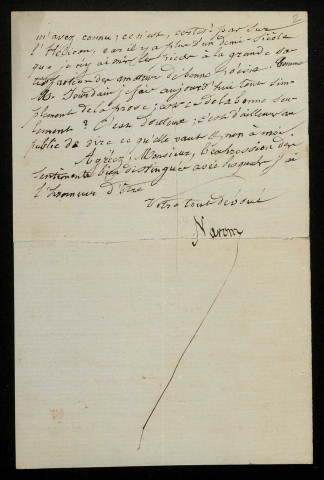 2
m'avez connu ; ce n'est, certes, par sur
l'Hélicon, car il y a plus d'un demi-siècle
que je n'y ai mis les pieds à la grande sa-
tisfaction des amateurs de bonne poésie. Comme
M. Jourdain, je fais aujourd'hui tout sim-
plement de la prose ; est-ce de la bonne seu-
lement ? C'est douteux ; c'est d'ailleurs au
public de dire ce qu'elle vaut & non à moi.
Agréez, Monsieur, l'expression des
sentiments bien distingués avec lesquels j'ai
l'honneur d'être
Votre tout dévoué